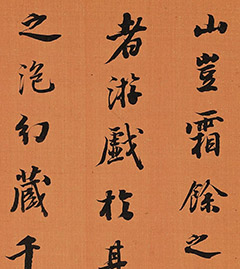 山豈霜餘之
者游戲於其
之泡幻藏千